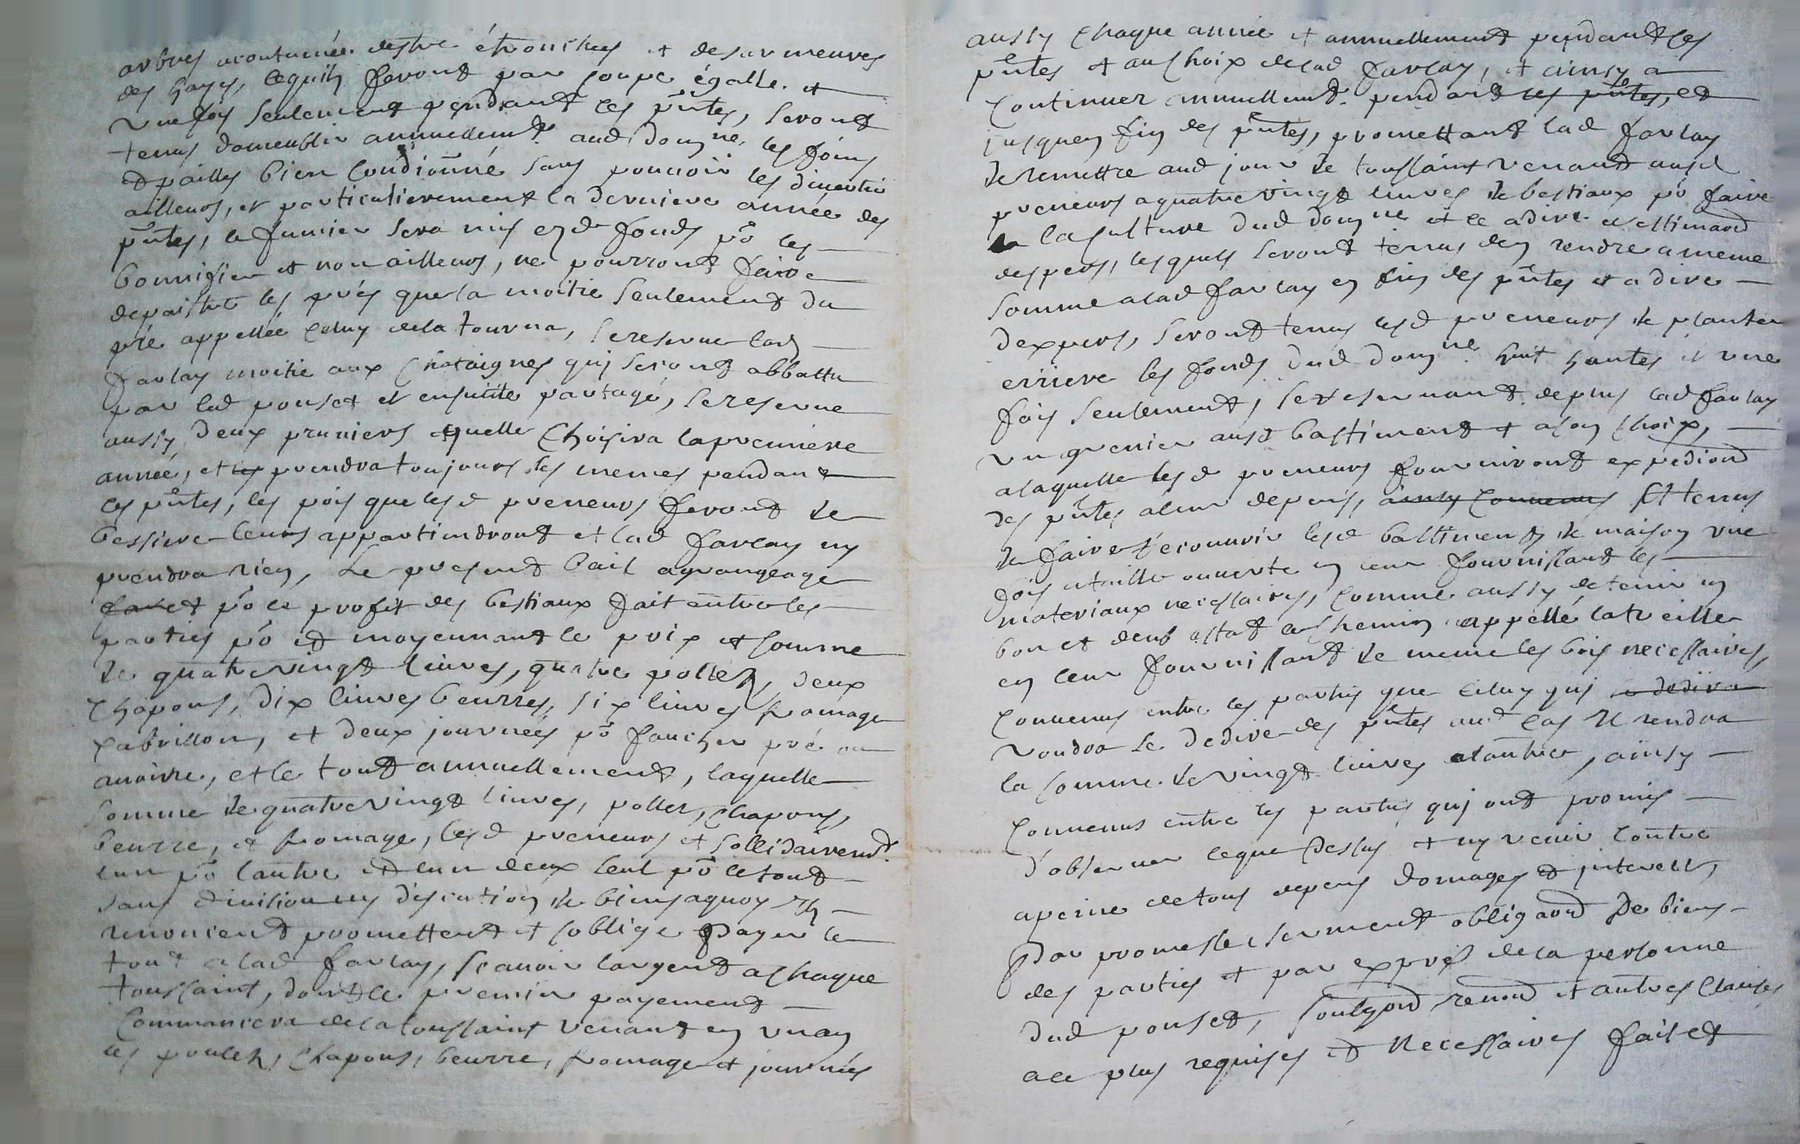 arbres acoutumée destre étronchees et des armeures
des hayes, lequils feront par coupe égalle et
une fois seulement pendant les pntes, seront
tenus dameublir annuellemt aud domne, les foins
et pailles bien condionné sans pouvoir les divertir
ailleurs, et particulierement la derniere année des
pntes, le fumier sera mis esd fonds po les
bonnifier et non ailleurs, ne pourront faire
depaistre les prés que la moitié seulement du
pré appellée celuy de la tourna, se reserve lad
farlay moitié aux chataignes qui seront abbattu
par led pouset et ensuitte partagé, se reserve
aussy deux pruniers quelle choisira la premiere
année, et les prendra toujours les memes pendant
les pntes, les pois que lesd preneurs feront de
bessive leurs appartiendront et lad farlay ny
prendra rien, Le present bail agrangeage
fait et po ce profit des bestiaux fait entre les
parties po et moyennant le prix et somme
de quatre vingt livres, quatre pollets, deux
chapons, dix livres beurres, six livres fromage
cabrillon, et deux journées po faucher pré ou
avoine, et le tout annuellement, laquelle
somme de quatre vingt livres, pollets, chapons,
beurre, et fromage, lesd preneurs et sollidairemt
lun po lautre et lun deux seul po le tout
sans division ny discution de biens aquoy ils
renoncent promettent et soblige payer le
tout a lad farlay, scavoir largent a chaque
toussaint, dont le premier payement
commancera de la toussaint venant en un an
les poulets, chapons, beurre, fromage et journées
aussy chaque année et annuellement pendant les
pntes et au choix de lad farlay, et ainsy a
continuer annuellemt pendant les pntes, et
jusquen fin des pntes, promettant lad farlay
de remettre aud jour de toussaint venant ausd
preneurs a quatre vingt livres de bestiaux po faire
la culture dud domne et ce a dire et estimaon
despers, lesquels seront tenus den rendre a meme
somme a lad farlay en fin des pntes et a dire
dexpers, seront tenus lesd preneurs de planter
erriere les fonds dud domne huit hantes et une
fois seulement, se reservant de plus lad farlay
un grenier ausd bastiment et a son choix,
a laquelle lesd preneurs fourniront expedion
des pntes a leur depens, ainsy convenus Et tenus
de faire recouvrir lesd bastiments de maison une
fois a taille ouverte en leur fournissant les
materiaux necessaires, comme aussy de tenir en
bon et deub estat le chemin appellé la treille
en leur fournissant de meme les bois necessaires,
convenus entre les parties que celuy qui a dedire
voudra se dedire des pntes aud cas Il rendra
la somme de vingt livres a lautre, ainsy
convenus entre les parties qui ont promis
d'observer ceque dessus et ny venir contre
a peine de tous depens domages et interests,
par promesse serment obligaon de biens
des parties et par exprés de la personne
dud pouset, soulgaon renaon et autres clauses
a ce plus requises et necessaires fait et